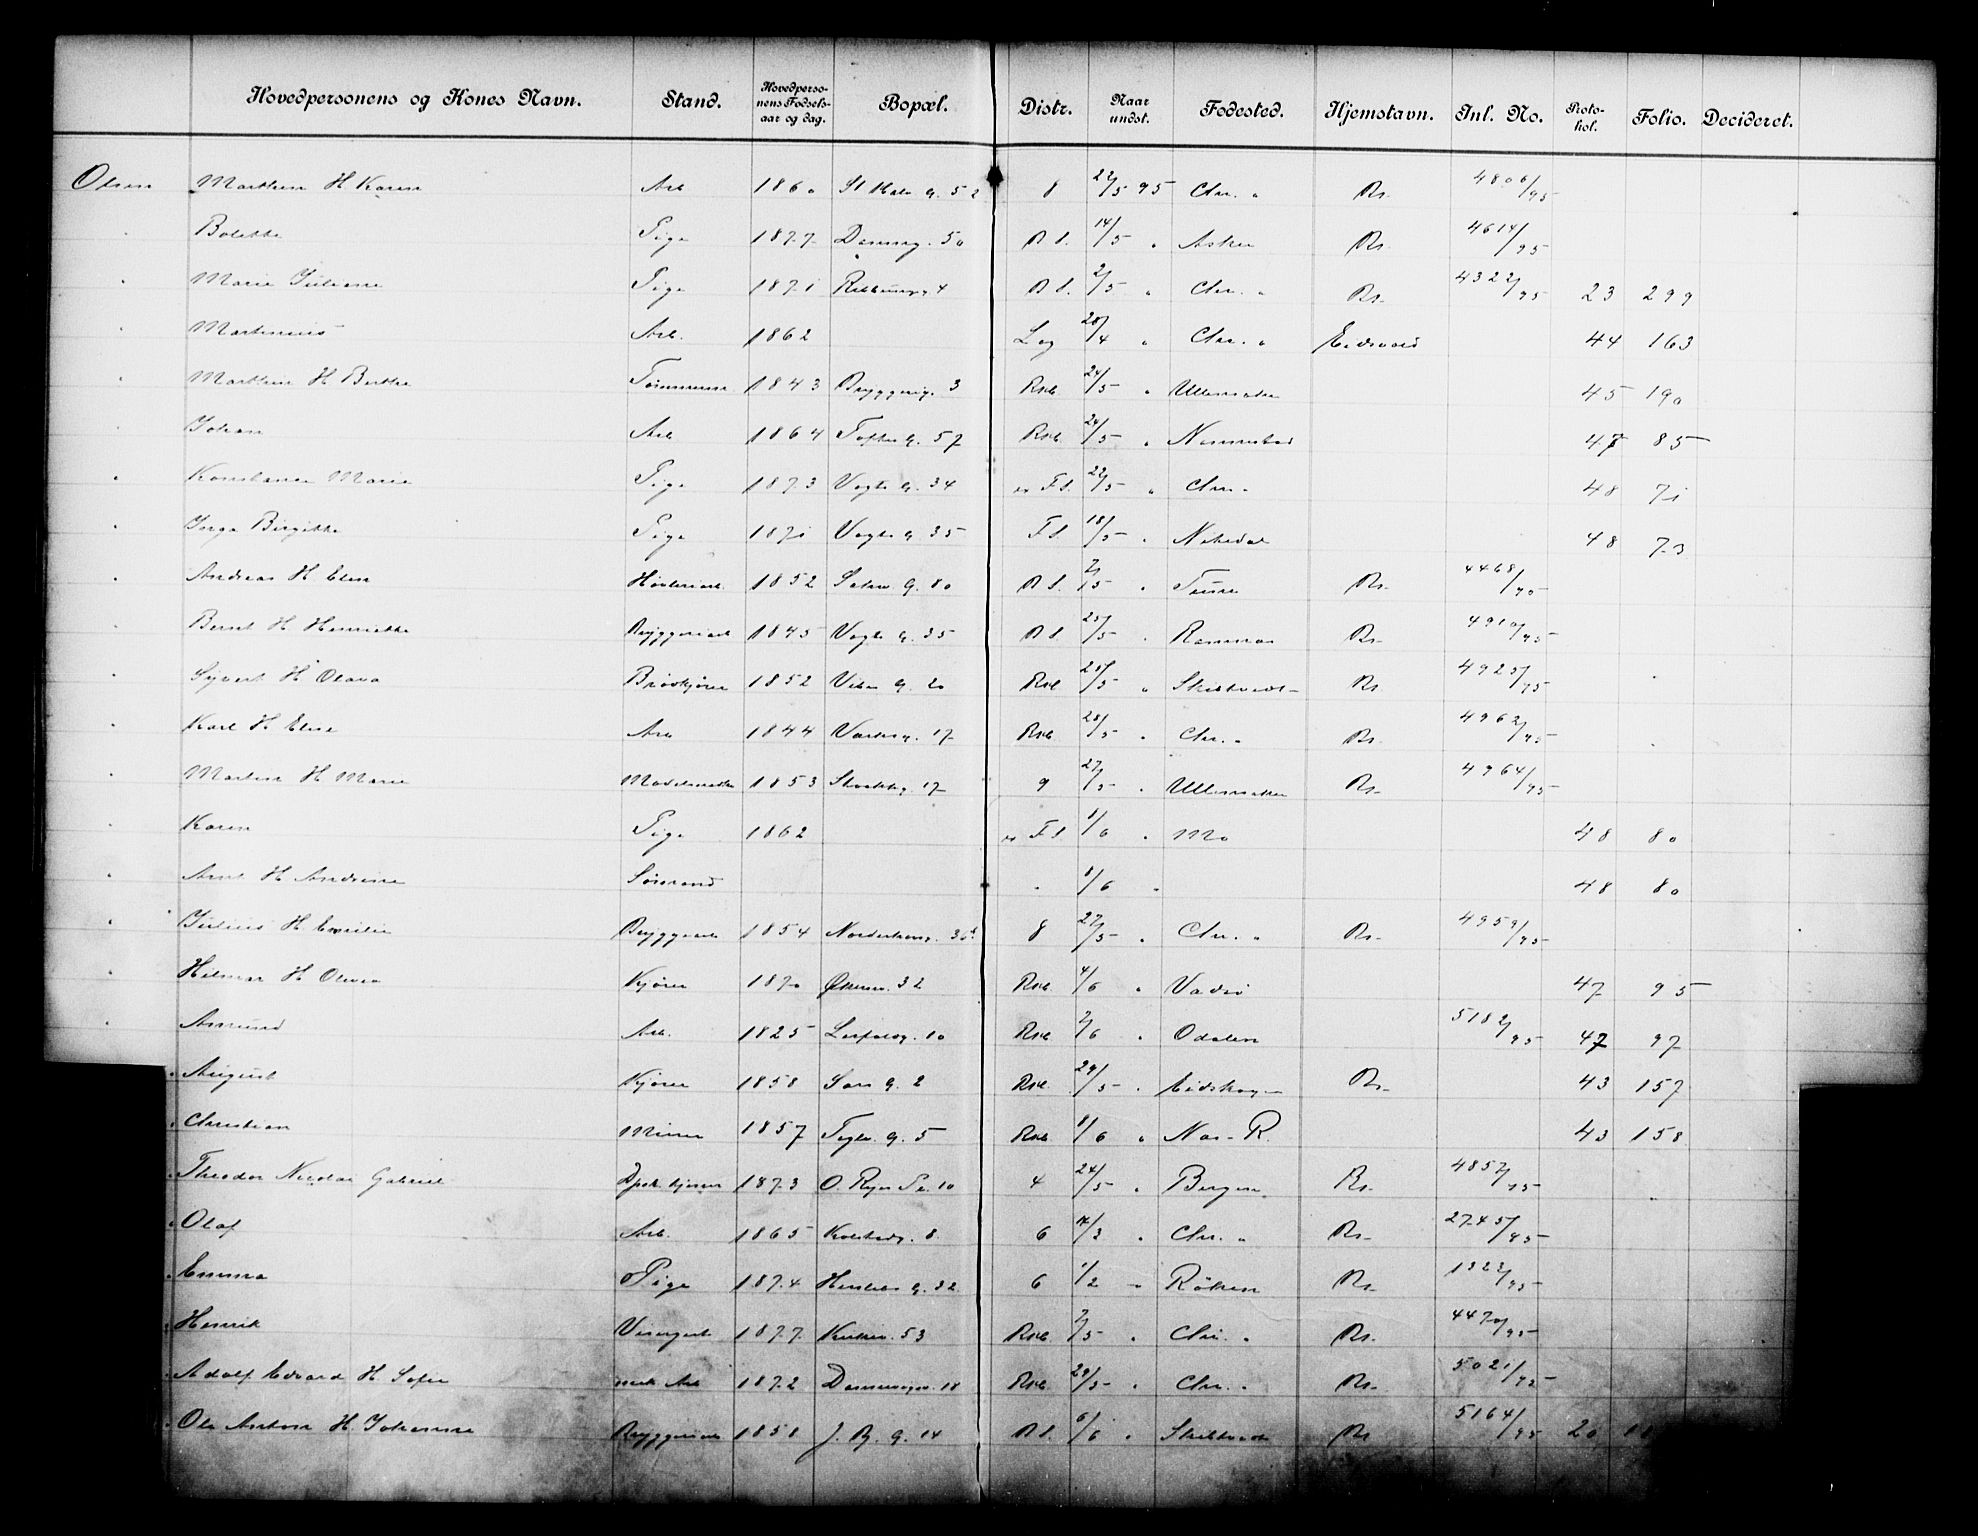 Hovedpersonens og Kones Navn. Stand. Hovedpersonens Fødselsaar og dag. Bopæl. Distr. Naar undst. Fødested. Hjemstavn. Inl. No. Protokol. Folio. Decideret.
Olsen Marthin H Karen Arb 1860 St Halv G. 52 8 22/5 95 Chr. „ Rs. 4806/95
„ Bolette Pige 1877 50 B S. 14/5 „ Asker Rs. 4614/95
„ Marie Juliane Pige 1871 4 B S. 2/5 „ Chr. „ Rs. 4322/95 23 299
„ Martinius Arb. 1862 Lag 28/4 „ Chr. „ Eidsvold 44 163
„ Marthin H Berthe Tømmerm. 1843 Bryggerig. 3 Rsk 24/5 „ Ullensaker 45 190
„ Johan Arb 1864 Toftes G. 57 Rsk. 24/5 „ 47 85
„ Konstance Marie Pige 1873 Vogts G. 34 Fs. 22/5 „ Chr. „ 48 71
„ Inga Birgitte Pige 1871 Vogts G. 35 Fs. 18/5 „ Nitedal 48 73
„ Andreas H Elen 1852 G. 80 B S. 7/5 „ Rs. 4468/95
„ Bernt H Henriette Bryggeriarb 1845 Vogts G. 35 B S. 25/5 „ Ramnæs Rs. 4910/95
„ Syvert H Olava Brødkjører 1852 Vibes G. 20 Rsk 25/5 „ Skibtvedt Rs. 4925/95
„ Karl H Elise Arb 1844 17 Rsk 28/5 „ Chr. „ Rs. 4962/95
„ Martin H Marie 1853 17 9 27/5 „ Ullensaker Rs. 4964/95
„ Karen Pige 1862 Fs. 1/6 „ Mo 48 80
„ Arnt H Andrine Sømand „ 1/6 „ 48 80
„ Julius H Emilie Bryggeriarb 1854 8 27/5 „ Chr. „ Rs. 4959/95
„ Hilmar H Olivia Kjører 1870 Økernv. 32 Rsk. 4/6 „ Vadsø 47 95
„ Amund Arb. 1825 10 Rsk 2/6 „ Odalen 5182/95 47 97
„ August Kjører 1858 Sars G. 2 Rsk. 29/5 „ Eidskogen Rs. 43 157
„ Christian Murer 1857 Teglv. G. 5 Rsk 8/6 „ Næs-R. 43 158
„ Theodor Nicolai Gabriel 1873 O. Ryes Pl. 10 4 24/5 „ Bergen Rs. 4857/95
„ Olaf Arb. 1865 Kolstadg. 8 6 14/3 „ Chr. „ Rs. 2745/95
„ Emma Pige 1874 Herslebs G. 32 6 1/2 „ Røken Rs. 1323/95
„ Henrik Visergut 1877 Kirkev. 53 Rsk 7/5 „ Chr. „ Rs. 4470/95
„ Adolf Edvard H Sofie Arb 1872 18 Rsk. 29/5 „ Chr. „ Rs. 5021/95
„ Ole Anton H. Johanne Bryggeriarb 1858 J. B. G. 14 B S. 6/6 „ Skibtvedt Rs. 5164/95 20